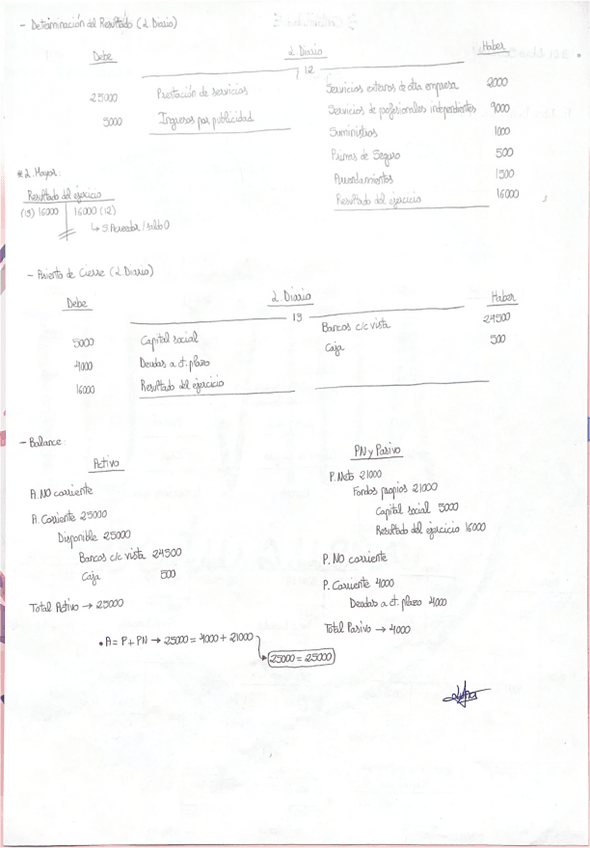 - Determinación del Resultado (L. Diario)
Debe L. Diario Haber
12
25000 Prestación de servicios Servicios externos de otra empresa 2000
5000 Ingresos por publicidad Servicios de profesionales independientes 9000
Suministros 1000
Primas de Seguro 500
Arrendamientos 1500
Resultado del ejercicio 16000
* L. Mayor:
Resultado del ejercicio
(13) 16000 16000 (12)
↳ S. Acreedor / saldo 0
- Asiento de Cierre (L. Diario)
Debe L. Diario Haber
13
Bancos c/c vista 24500
5000 Capital social Caja 500
4000 Deudas a ct. plazo
16000 Resultado del ejercicio
- Balance:
Activo PN y Pasivo
A. NO corriente P. Neto 21000
Fondos propios 21000
A. Corriente 25000 Capital social 5000
Disponible 25000 Resultado del ejercicio 16000
Bancos c/c vista 24500
Caja 500 P. NO corriente
P. Corriente 4000
Deudas a ct. plazo 4000
Total Activo → 25000
Total Pasivo → 4000
• A = P + PN → 25000 = 4000 + 21000
25000 = 25000